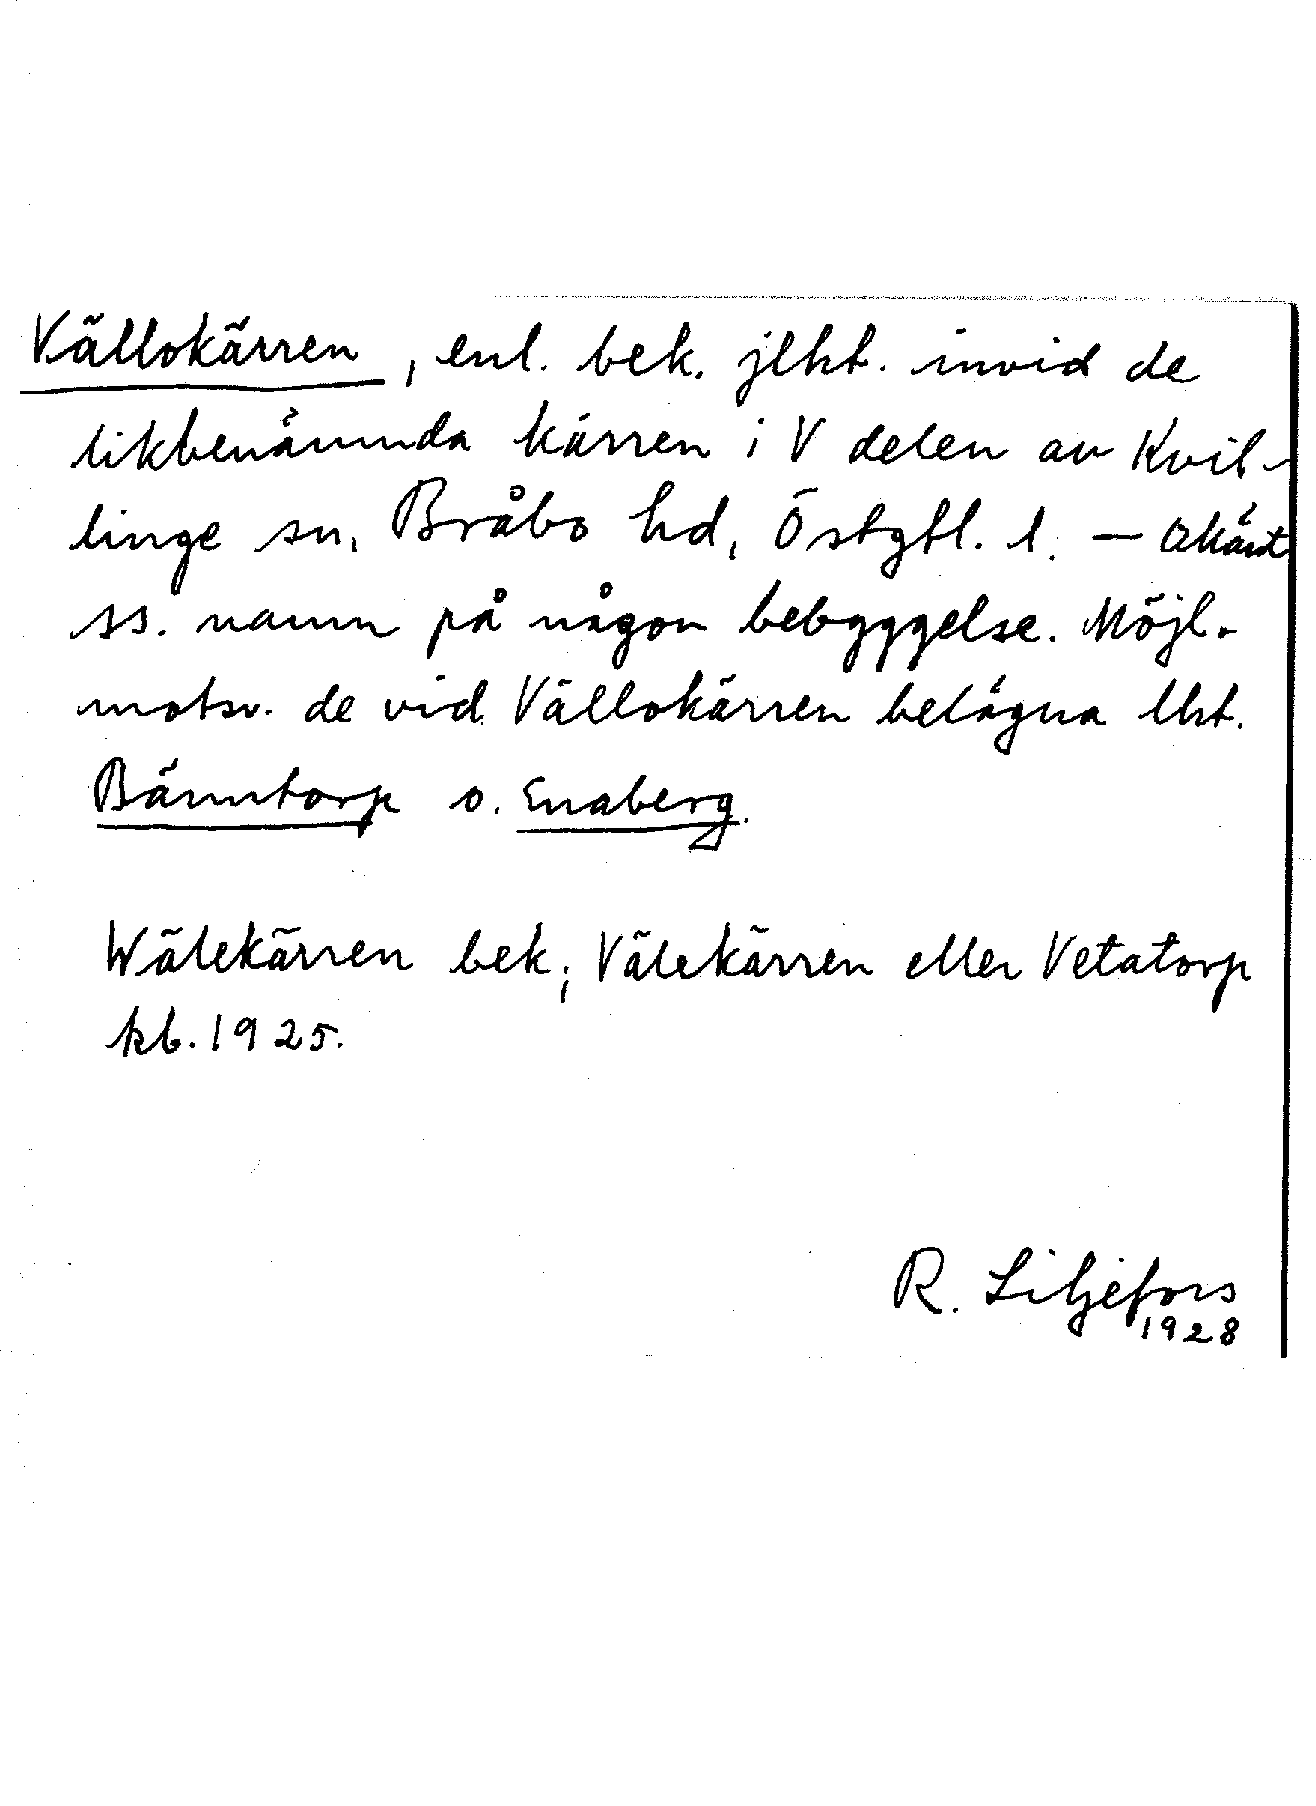 Vällokärren, enl. bek. jlht. invid de
likbenämnda kärren i V delen av Kvil-
linge sn, Bråbo hd, Östgtl. l. — Okänt
ss. namn på någon bebyggelse. Möjl.
motsv. de vid Vällokärren belägna lht.
Bänntorp o. Enaberg.
Wälekärren bek; Välekärren eller Vetatorp
kb. 1925.
R. Liljefors
1928